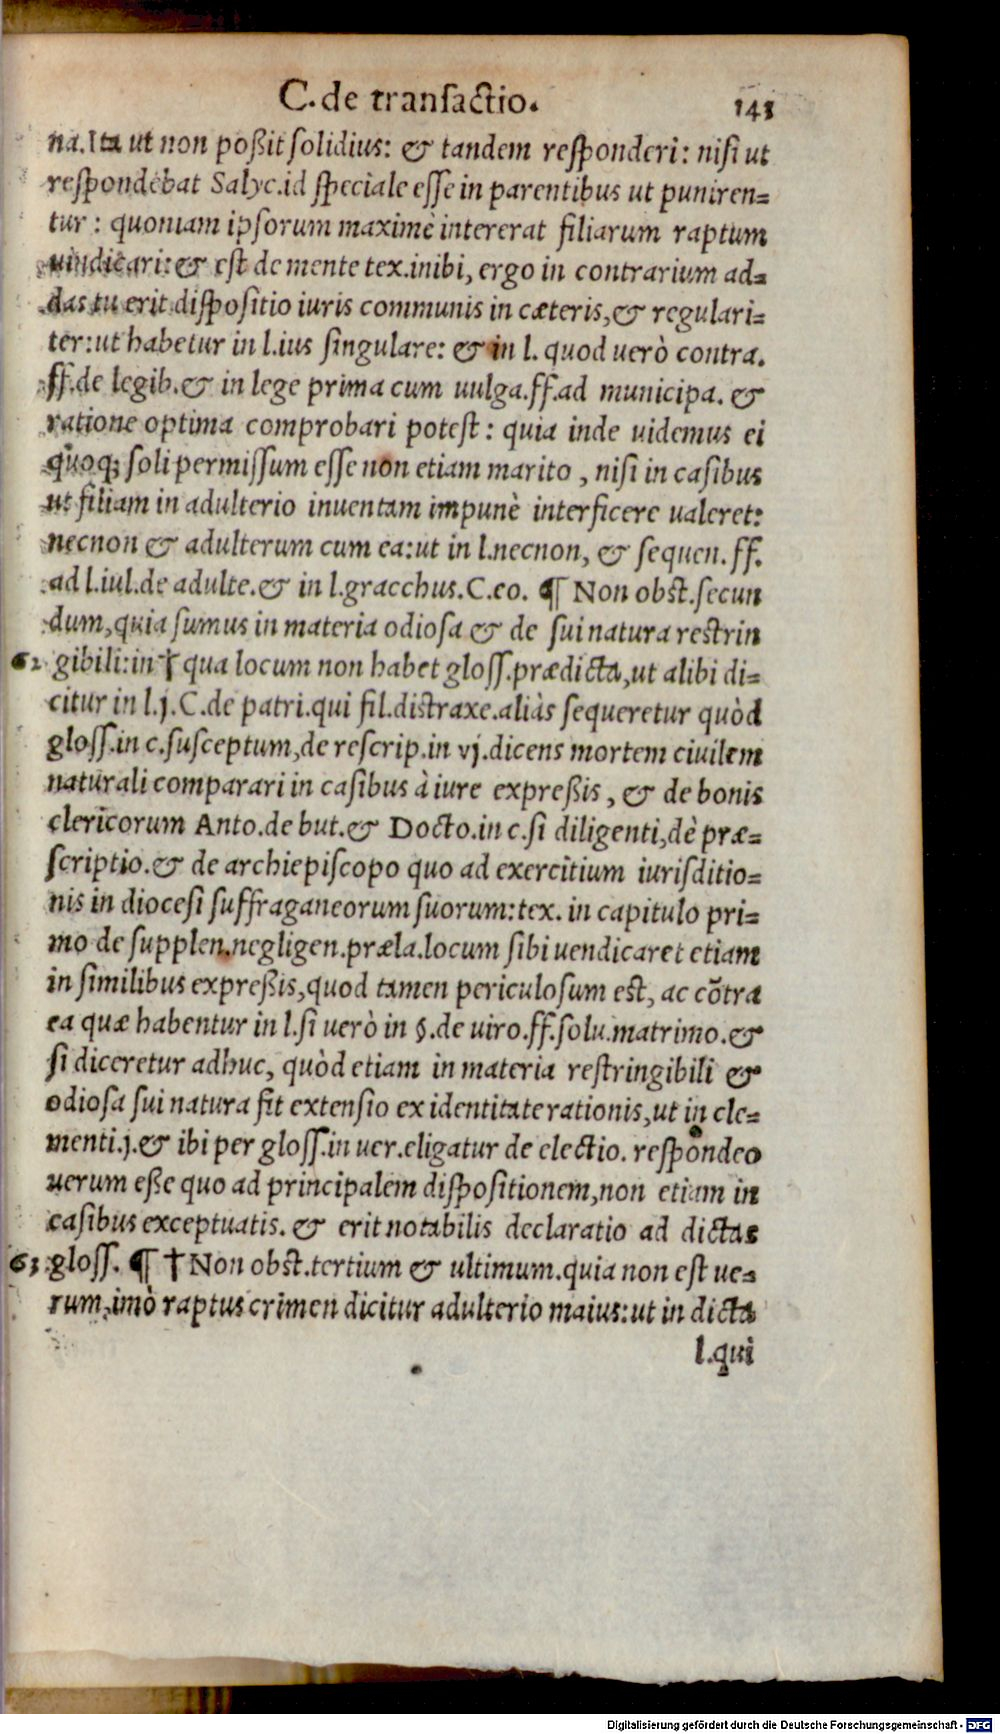 C. de transactio. 143
na. Ita ut non poßit solidius: & tandem responderi: nisi ut
respondebat Salyc. id speciale esse in parentibus ut puniren=
tur: quoniam ipsorum maximè intererat filiarum raptum
uindicari: & est de mente tex. inibi, ergo in contrarium ad=
das tu erit dispositio iuris communis in cæteris, & regulari=
ter: ut habetur in l. ius singulare: & in l. quod uerò contra.
ff. de legib. & in lege prima cum uulga. ff. ad municipa. &
ratione optima comprobari potest: quia inde uidemus ei
quoq; soli permissum esse non etiam marito, nisi in casibus
ut filiam in adulterio inuentam impunè interficere ualeret:
necnon & adulterum cum ea: ut in l. necnon, & sequen. ff.
ad l. iul. de adulte. & in l. gracchus. C. eo. ¶ Non obst. secun
dum, quia sumus in materia odiosa & de sui natura restrin
62 gibili: in † qua locum non habet gloss. prædicta, ut alibi di=
citur in l. j. C. de patri. qui fil. distraxe. aliàs sequeretur quòd
gloss. in c. susceptum, de rescrip. in vj. dicens mortem ciuilem
naturali comparari in casibus à iure expreßis, & de bonis
clericorum Anto. de but. & Docto. in c. si diligenti, dè præ=
scriptio. & de archiepiscopo quo ad exercitium iurisditio=
nis in diocesi suffraganeorum suorum: tex. in capitulo pri=
mo de supplen. negligen. præla. locum sibi uendicaret etiam
in similibus expreßis, quod tamen periculosum est, ac cõtra
ea quæ habentur in l. si uerò in §. de uiro. ff. solu. matrimo. &
si diceretur adhuc, quòd etiam in materia restringibili &
odiosa sui natura fit extensio ex identitate rationis, ut in cle=
menti. j. & ibi per gloss. in uer. eligatur de electio. respondeo
uerum eße quo ad principalem dispositionem, non etiam in
casibus exceptuatis. & erit notabilis declaratio ad dictas
63 gloss. ¶ † Non obst. tertium & ultimum. quia non est ue=
rum, imò raptus crimen dicitur adulterio maius: ut in dicta
l. qui
Digitalisierung gefördert durch die Deutsche Forschungsgemeinschaft - DFG